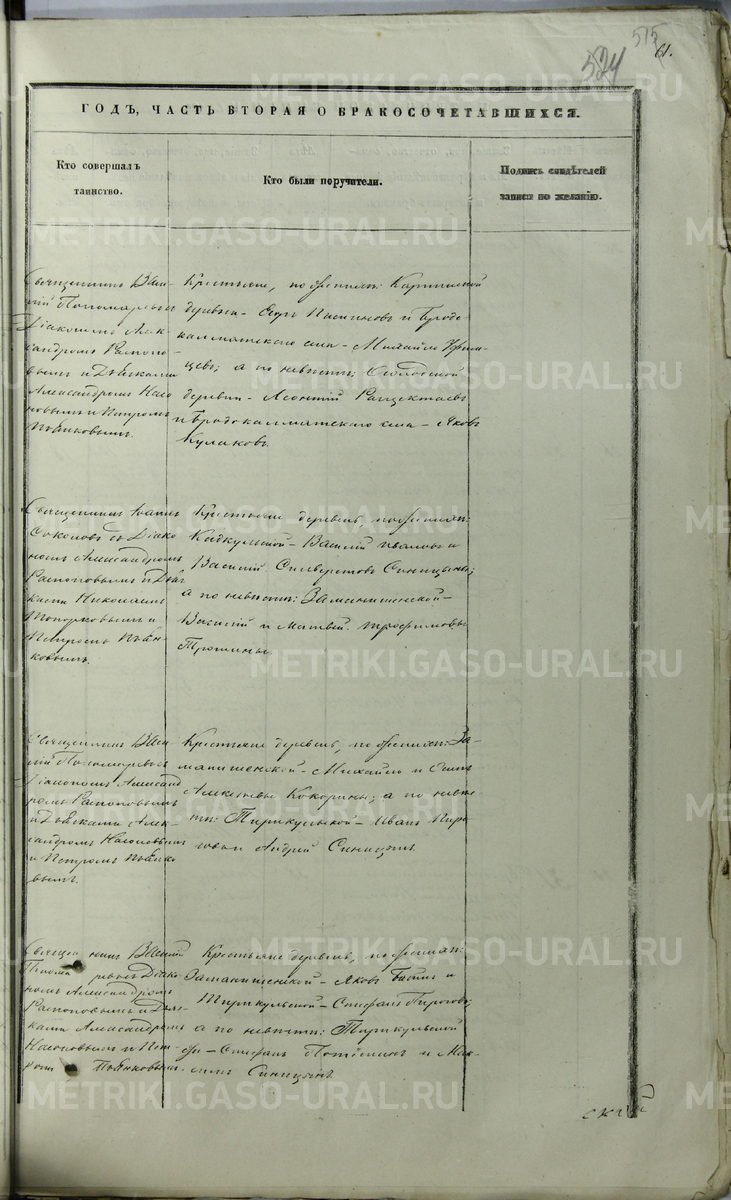 515
524
61.
ГОДЪ, ЧАСТЬ ВТОРАЯ О БРАКОСОЧЕТАВШИХСЯ.
Кто совершалъ
таинство.
Кто были поручители.
Подпись свидѣтелей
записи по желанію.
Священникъ Васи-
лій Пономаревъ
Діакономъ Алек-
сандромъ Распопо-
вымъ и Дьячками
Александромъ Насо-
новымъ и Петромъ
Пьянковымъ.
Крестьяне, по женихѣ: Карпиной
деревни - Егоръ и Бродо-
калмакскаго села - Михайло
а по невѣстѣ: Слободской
деревни - Леонтій
и Бродокалмакскаго села - Яковъ
Кулаковъ.
Священникъ Іоаннъ
Соколовъ съ Діако-
номъ Александромъ
Распоповымъ и Дьяч-
ками Николаемъ
Топорковымъ и
Петромъ Пьян-
ковымъ.
Крестьяне деревень, по женихѣ:
Кадкульской - Василій Ивановъ и
Василій Силверстовъ Синицыны;
а по невѣстѣ: Заманишенской -
Василій и Матвей Трофимовы
Трошины.
Священникъ Васи-
лій Пономаревъ съ
Діакономъ Александ-
ромъ Распоповымъ
и Дьячками Алек-
сандромъ Насоновымъ
и Петромъ Пьянко-
вымъ.
Крестьяне деревень, по женихѣ: За-
манишенской - Михайло и
Алексѣевы Кокорины; а по невѣс-
тѣ: Тирикульской - Иванъ Пиро-
говъ и Андрей Синицынъ.
Священникъ Василій
Пономаревъ Діако-
номъ Александромъ
Распоповымъ и Дьяч-
ками Александромъ
Насоновымъ и Пет-
ромъ Пьянковымъ.
Крестьяне деревень, по женихѣ:
Заманишенской - Яковъ и
Тирикульской - Стефанъ Пироговъ;
а по невѣстѣ: Тирикульской
Стефанъ Потёминъ и Мак-
симъ Синицынъ.
METRIKI.GASO-URAL.RU